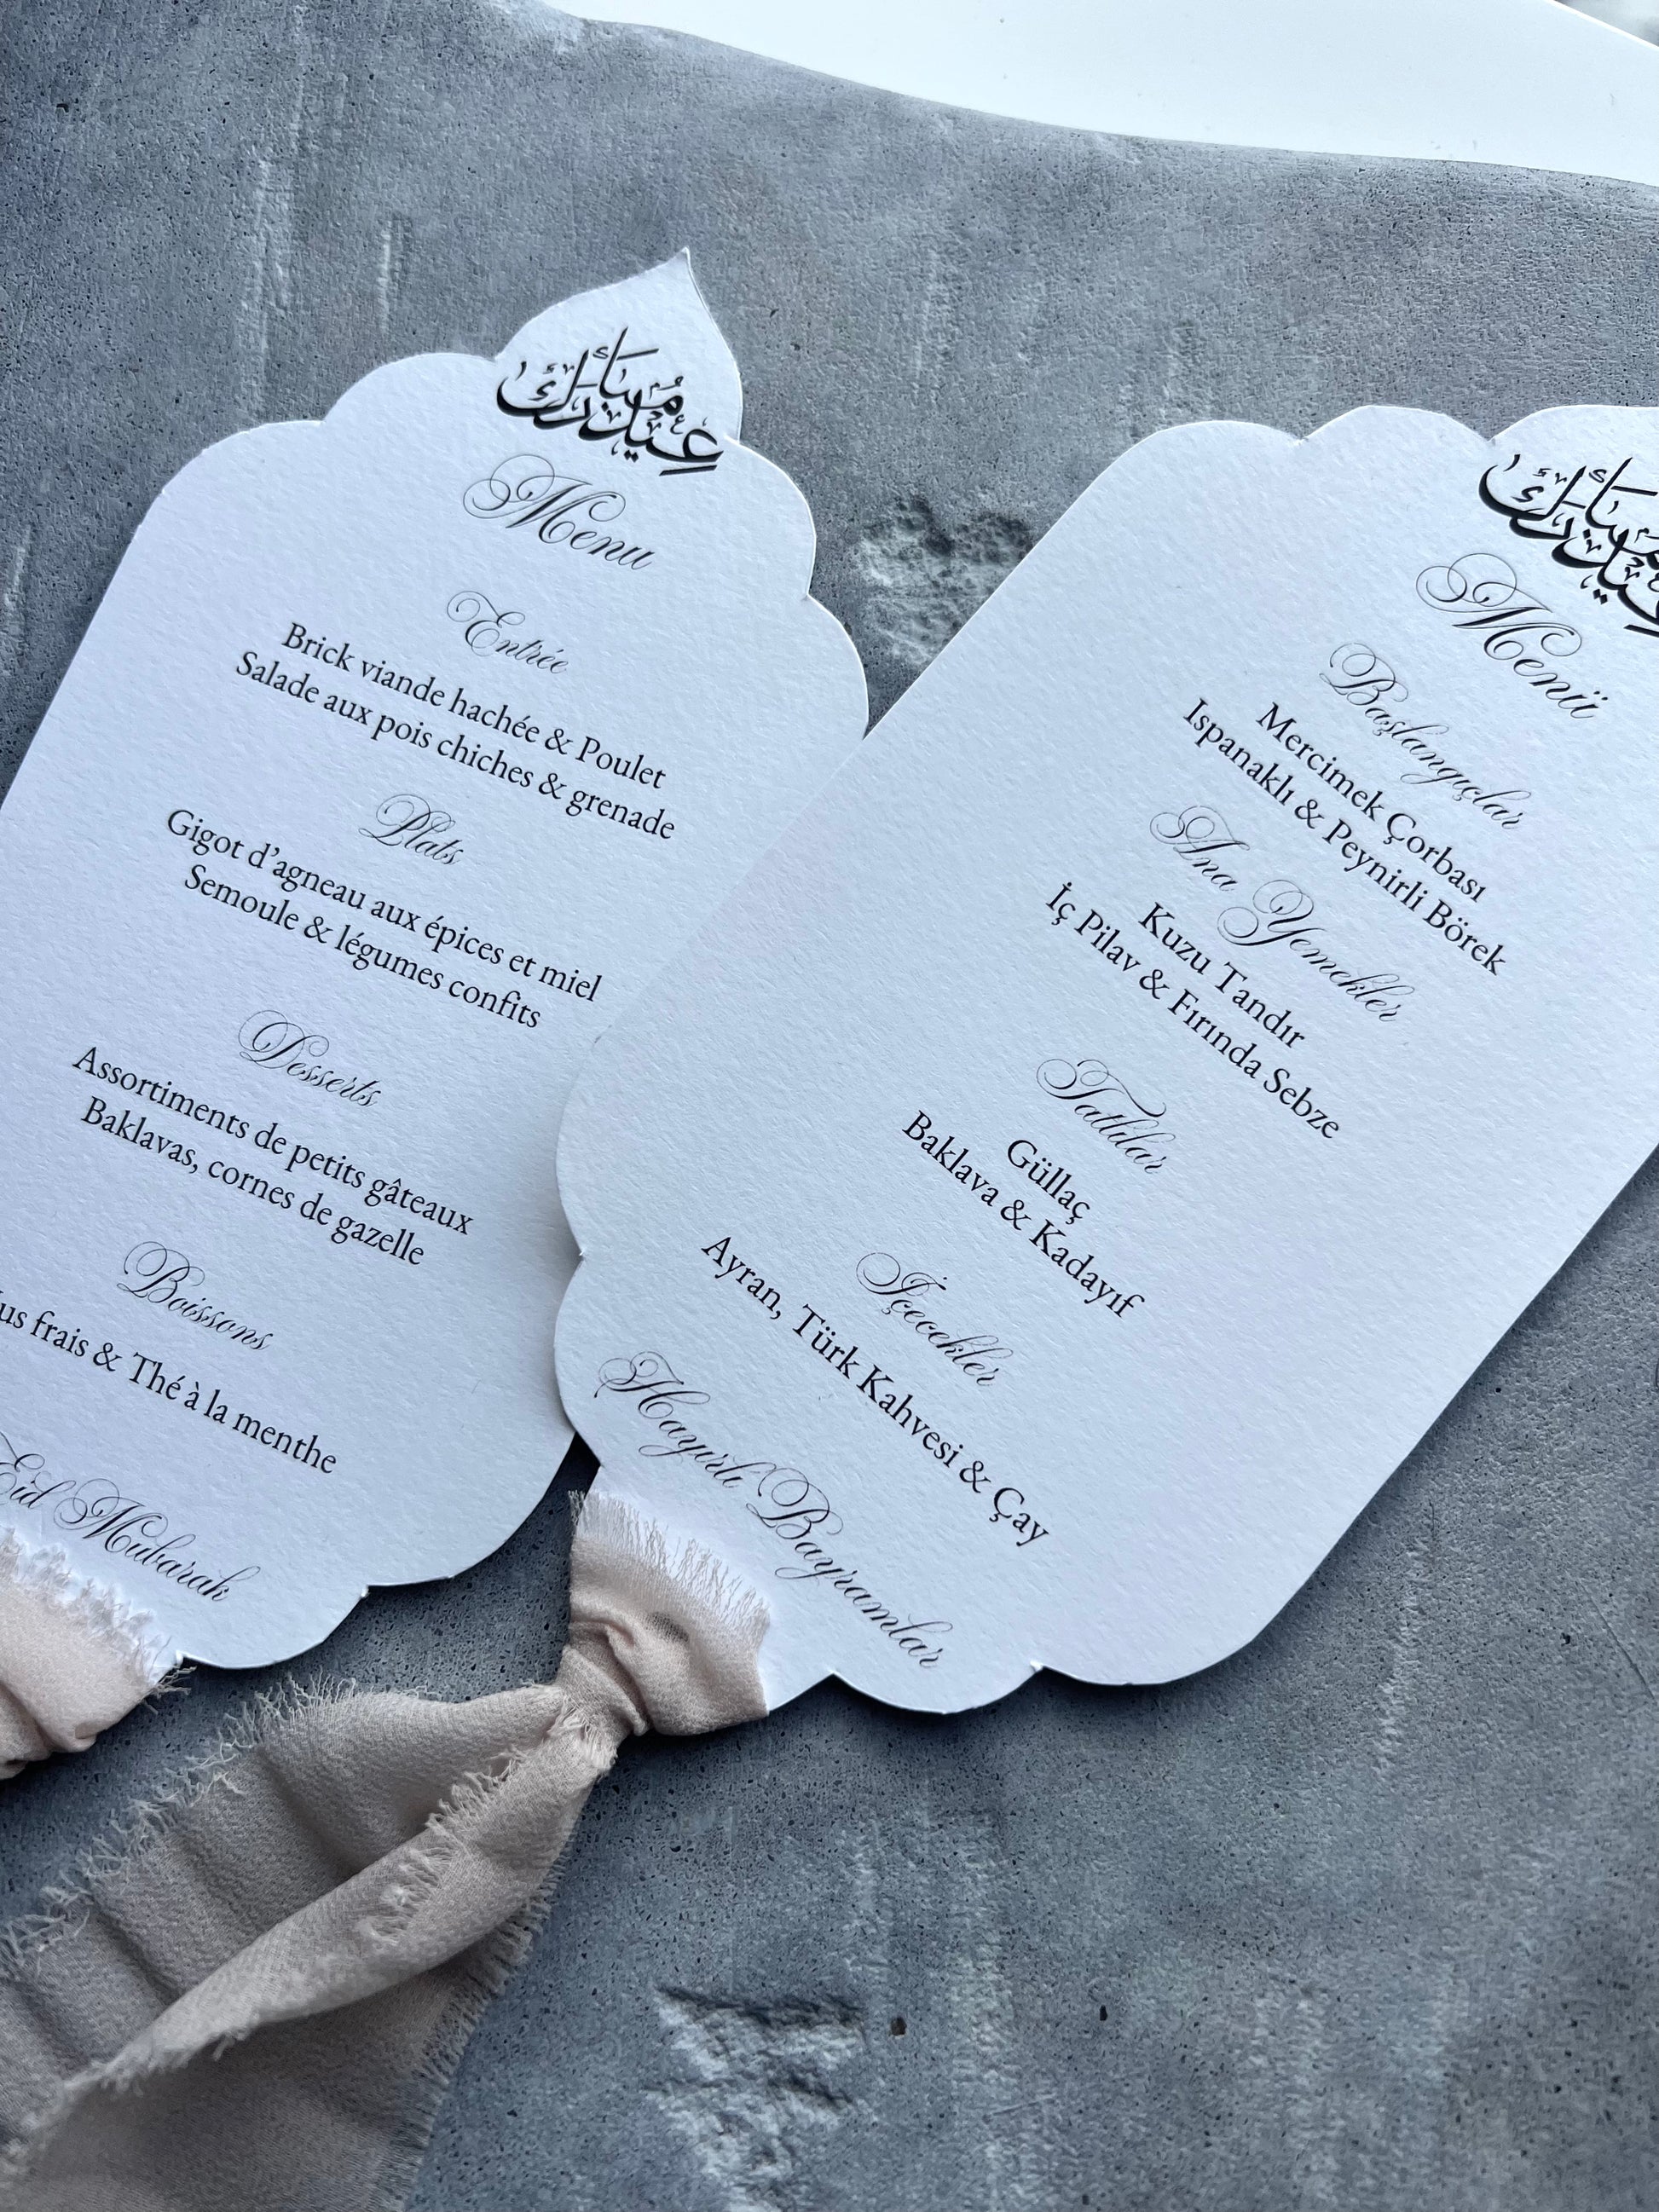 عيد مبارك
Menu
Entrée
Brick viande hachée & Poulet
Salade aux pois chiches & grenade
Plats
Gigot d’agneau aux épices et miel
Semoule & légumes confits
Desserts
Assortiments de petits gâteaux
Baklavas, cornes de gazelle
Boissons
frais & Thé à la menthe
Eid Mubarak
عيد مبارك
Menü
Başlangıçlar
Mercimek Çorbası
Ispanaklı & Peynirli Börek
Ana Yemekler
Kuzu Tandır
İç Pilav & Fırında Sebze
Tatlılar
Güllaç
Baklava & Kadayıf
İçecekler
Ayran, Türk Kahvesi & Çay
Hayırlı Bayramlar